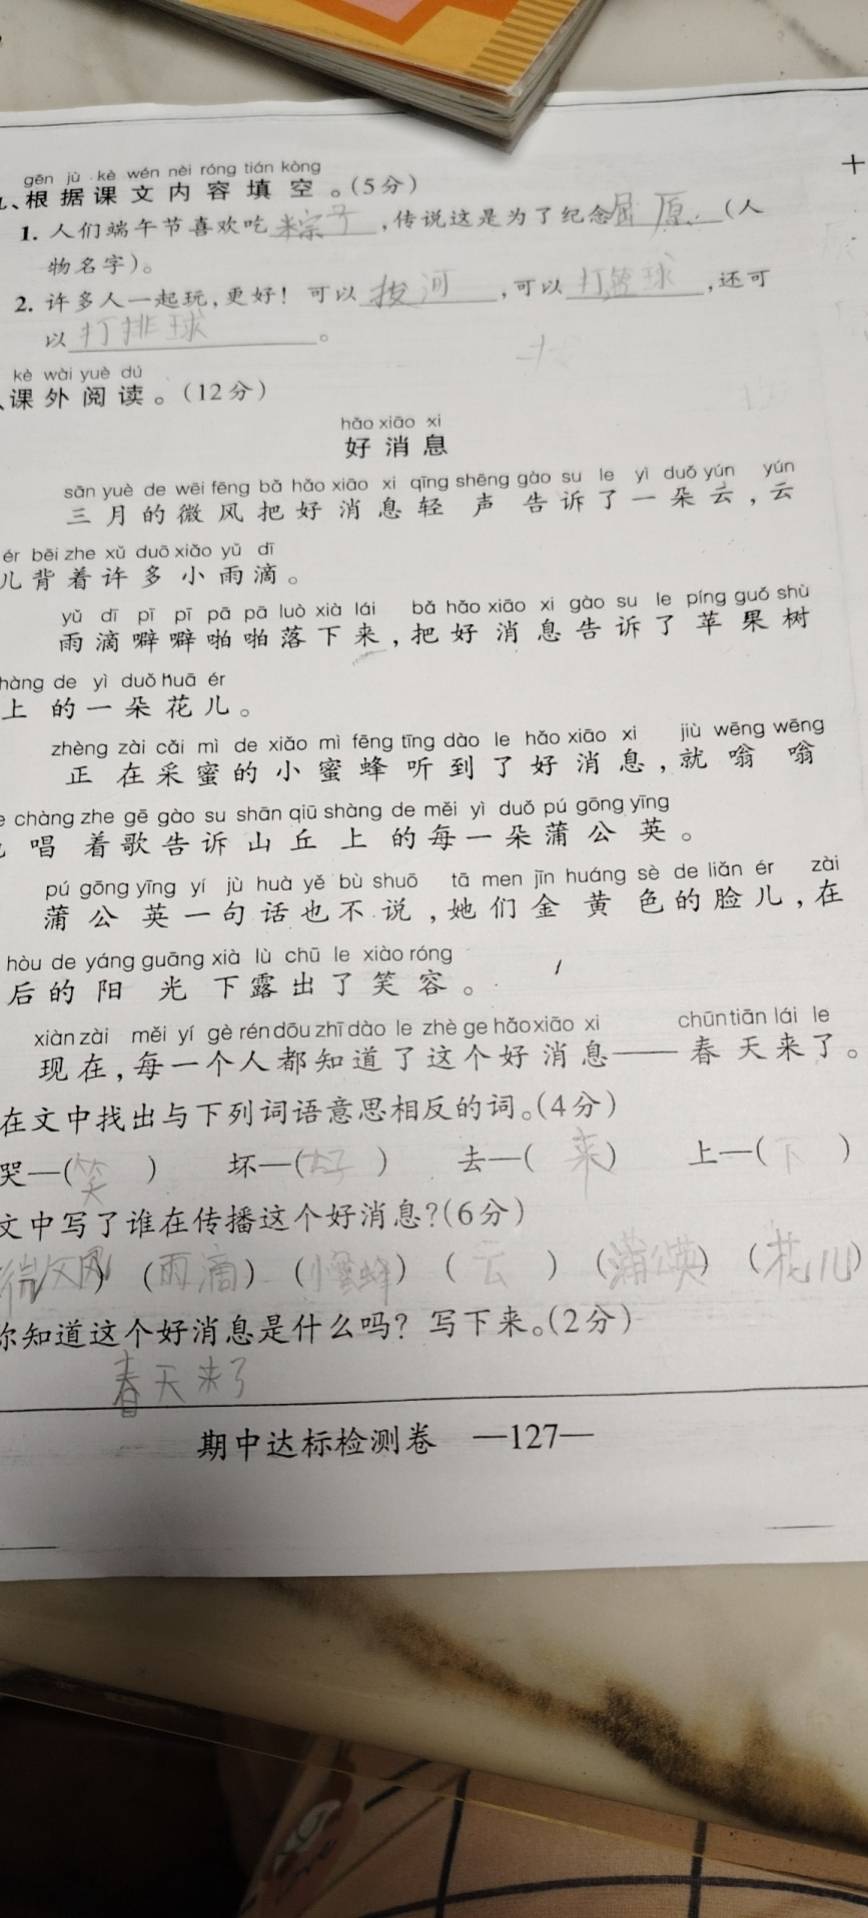 gēn jù kè wén nèi róng tián kòng
、根据课文内容填空。(5分)
1. 人们端午节喜欢吃粽子,传说这是为了纪念屈原(人
物名字)。
2. 许多人一起玩,更好！可以拔河,可以打篮球,还可
以打排球。
kè wài yuè dú
、课外阅读。(12分)
hǎo xiāo xi
好消息
sān yuè de wēi fēng bǎ hǎo xiāo xi qīng shēng gào su le yì duǒ yún yún
三月的微风把好消息轻声告诉了一朵云,云
ér bēi zhe xǔ duō xiǎo yǔ dī
儿背着许多小雨滴。
yǔ dī pī pī pā pā luò xià lái bǎ hǎo xiāo xi gào su le píng guǒ shù
雨滴噼噼啪啪落下来,把好消息告诉了苹果树
hàng de yì duǒ huā ér
上的一朵花儿。
zhèng zài cǎi mì de xiǎo mì fēng tīng dào le hǎo xiāo xi jiù wēng wēng
正在采蜜的小蜜蜂听到了好消息,就嗡嗡
e chàng zhe gē gào su shān qiū shàng de měi yì duǒ pú gōng yīng
唱着歌告诉山丘上的每一朵蒲公英。
pú gōng yīng yí jù huà yě bù shuō tā men jīn huáng sè de liǎn ér zài
蒲公英一句话也不说,她们金黄色的脸儿,在
hòu de yáng guāng xià lù chū le xiào róng
后的阳光下露出了笑容。
xiàn zài měi yí gè rén dōu zhī dào le zhè ge hǎo xiāo xi chūn tiān lái le
现在,每一个人都知道了这个好消息——春天来了。
在文中找出与下列词语意思相反的词。(4分)
哭—(笑) 坏—(好) 去—(来) 上—(下)
文中写了谁在传播这个好消息?(6分)
微风) (雨滴) (小蜜蜂) (云) (蒲公英) (花儿)
你知道这个好消息是什么吗? 写下来。(2分)
春天来了
期中达标检测卷 —127—